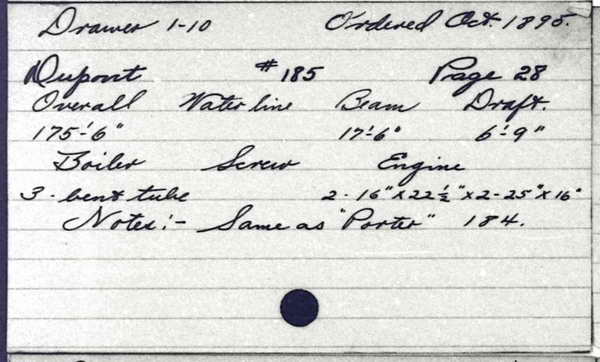 Drawer 1-10 Ordered Oct. 1895.
Dupont #185 Page 28
Overall Water line Beam Draft.
175'-6" 17'-6" 6'-9"
Boiler Screw Engine
3 - bent tube 2 - 16" x 22 1/2" x 2 - 25" x 16"
Notes:- Same as "Porter" 184.